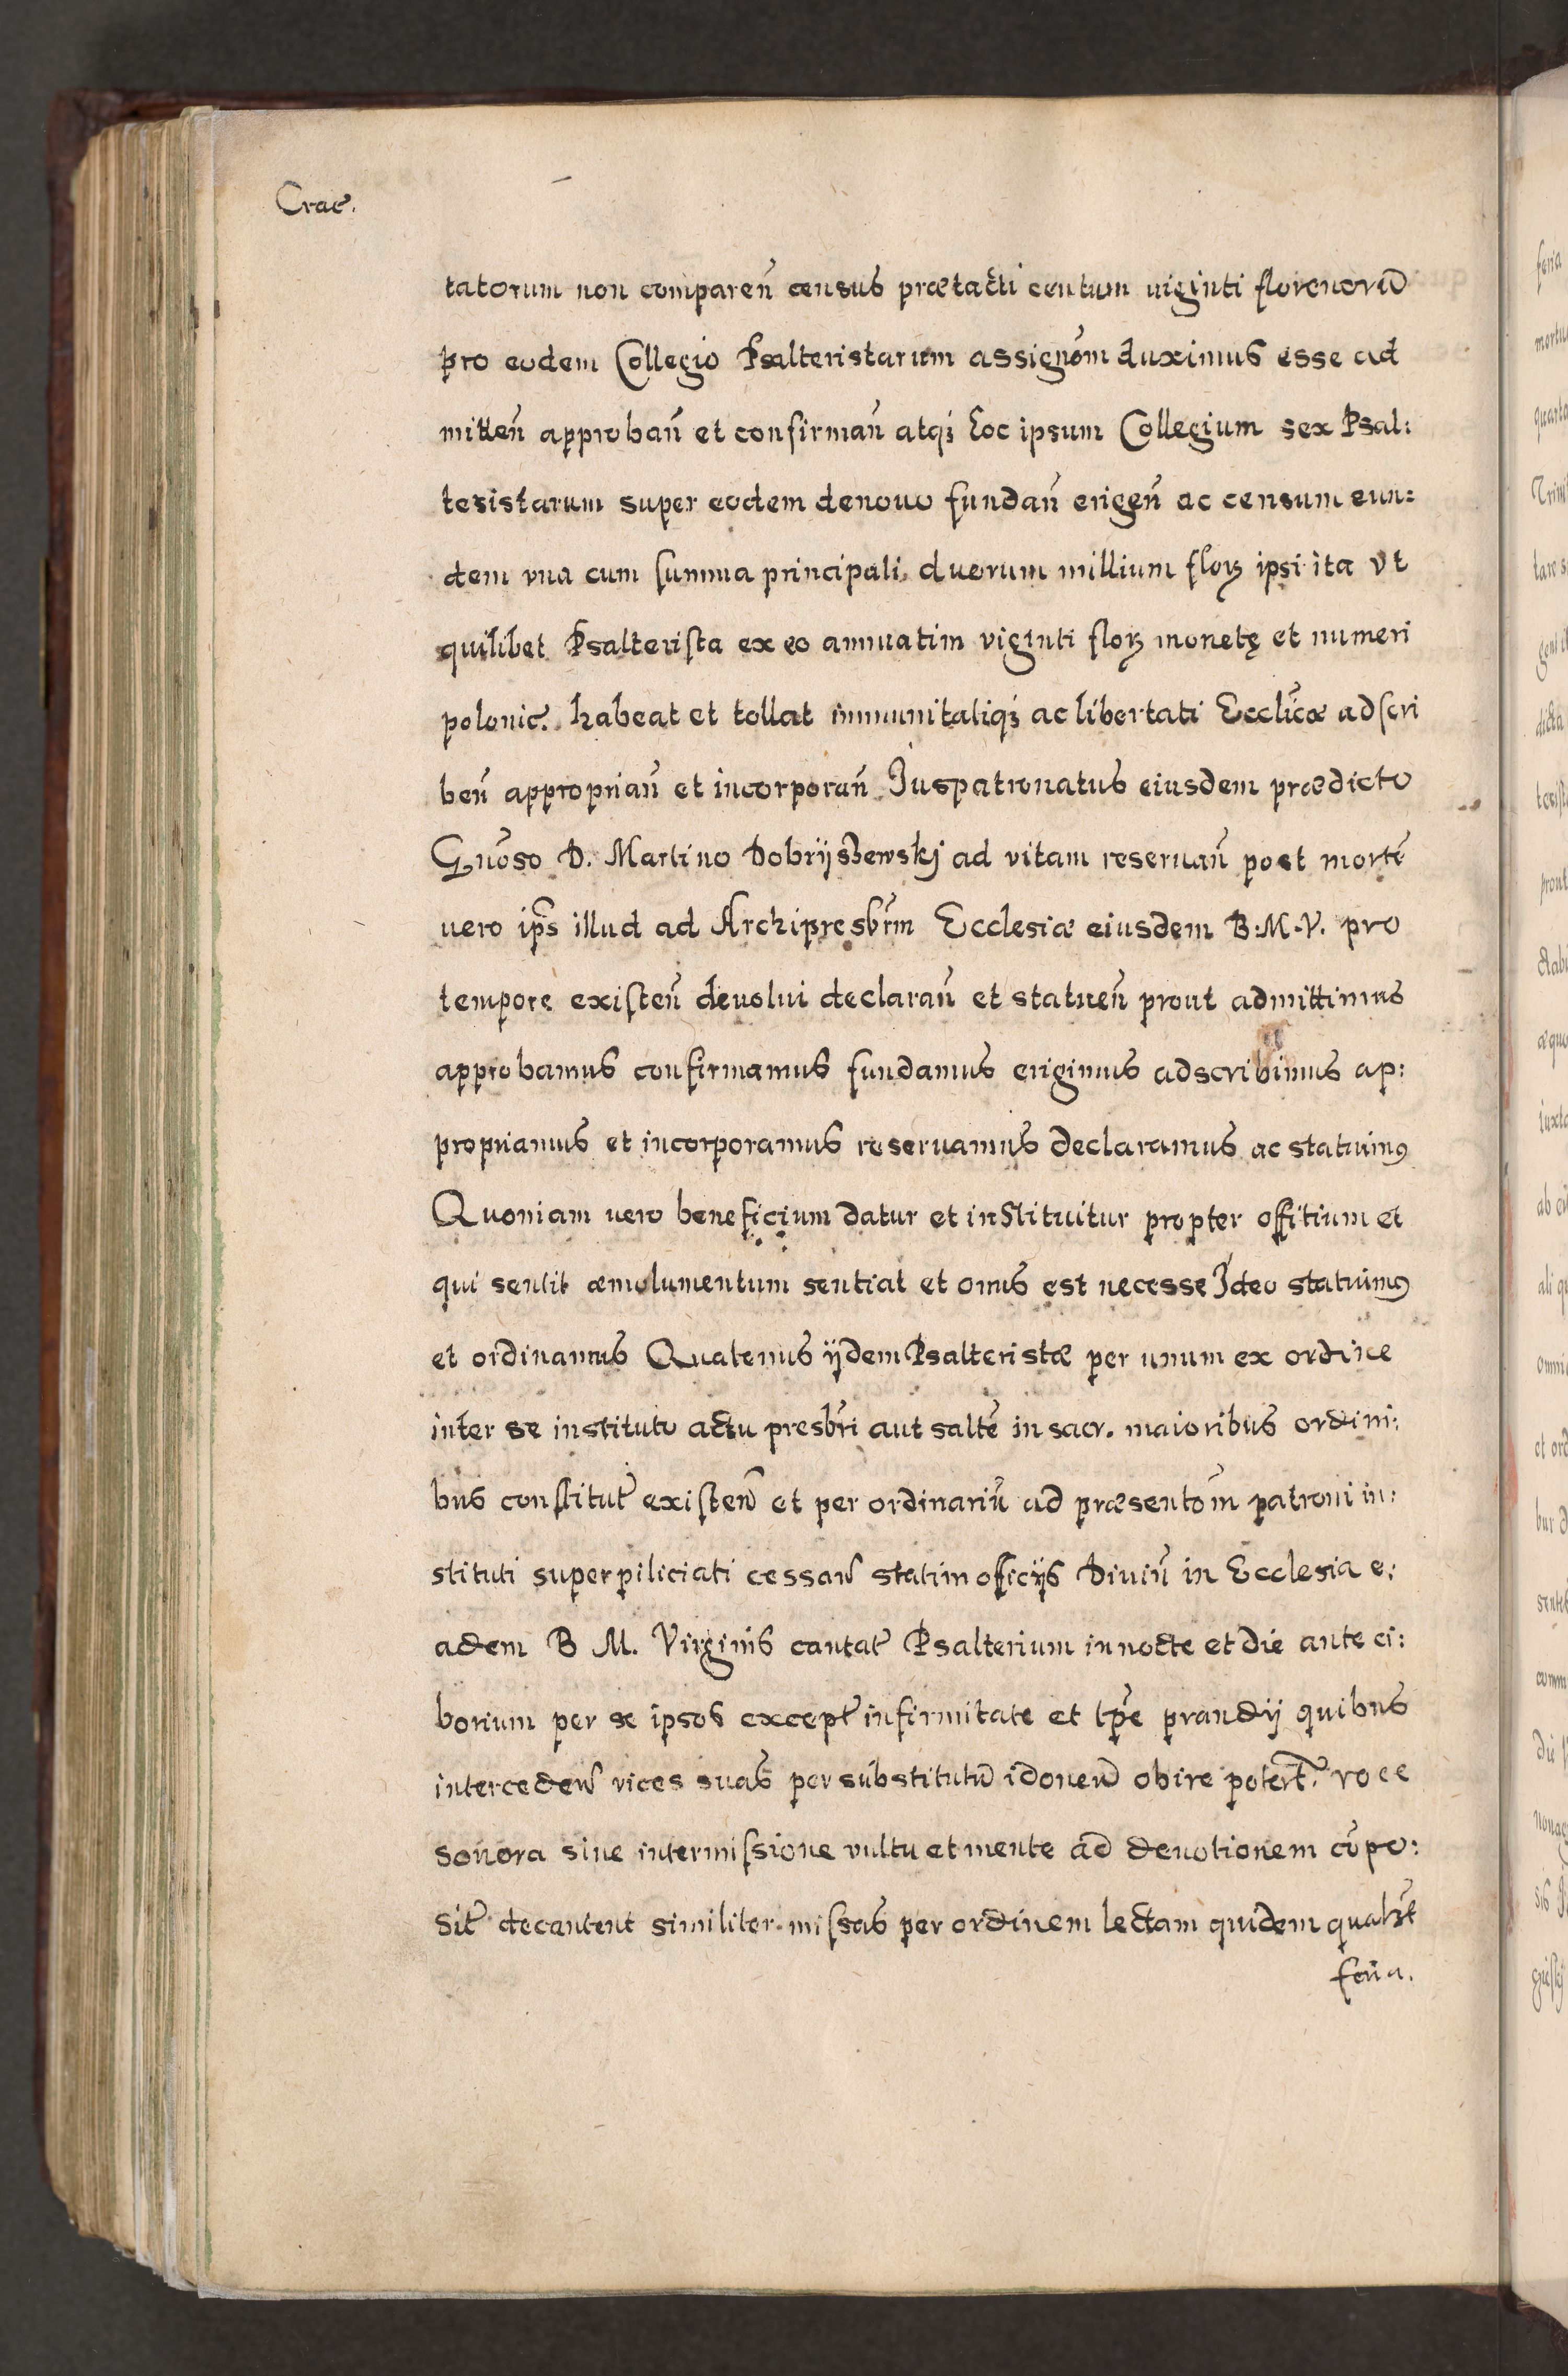 Crac̃.
tatorum non comparen̄ census prætacti centum uiginti florenorũ
pro eodem Collegio Psalteristarum assignom̄ duximus esse ad
mitten̄ approban̄ et confirman̄ atqȝ hoc ipsum Collegium sex Psal:
teristarum super eodem denouo fundan̄ erigen̄ ac censum eun:
dem vna cum summa principali duorum millium floꝝ ipsi ita vt
quilibet Psalterista ex eo annuatim viginti floꝝ monetę et numeri
polonic̃. habeat et tollat immunitatiqȝ ac libertati Ecclic̄æ adscri
ben̄ approprian̄ et incorporan̄ Iuspatronatus eiusdem prædicto
Gn̄oso D. Martino Dobrijszewskj ad vitam reseruan̄ post mortẽ
uero ip̄s illud ad Archipresbr̄m Ecclesiæ eiusdem B:M.V. pro
tempore existen̄ deuolui declaran̄ et statuen̄ prout admittimus
approbamus confirmamus fundamus erigimus adscribimus ap:
propriamus et incorporamus reseruamus declaramus ac statuimꝰ
Quoniam uero beneficium datur et instituitur propter offitium et
qui sentit æmolumentum sentiat et onus est necesse Ideo statuimꝰ
et ordinamus Quatenus ijdem Psalteristæ per unum ex ordine
inter se instituto actu presbr̄i aut saltẽ in sacr. maioribus ordini:
bus constitut̃ existen̄ et per ordinariũ ad præsentom̄ patroni in:
stituti superpiliciati cessan̄ statim officijs Diuin̄ in Ecclesia e:
adem B M. Virginis cantat̃ Psalterium in nocte et die ante ci:
borium per se ipsos except̃ infirmitate et tp̄re prandij quibus
interceden̄ vices suas per substitutũ idoneũ obire potert̃. voce
sonora sine intermissione vultu et mente ad deuotionem cõpo:
sit̃ decantent similiter missas per ordinem lectam quidem qualꝫt
feria.